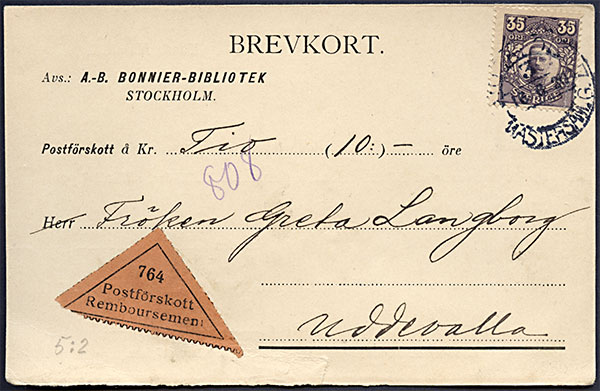 BREVKORT.
35 35
ÖRE ÖRE
SVERIGE
Avs.: A.-B. BONNIER-BIBLIOTEK
STOCKHOLM.
Postförskott å Kr. Tio (10:)— öre
808
Herr Fröken Greta Langborg
764
Postförskott
Remboursement
Uddevalla
5:2